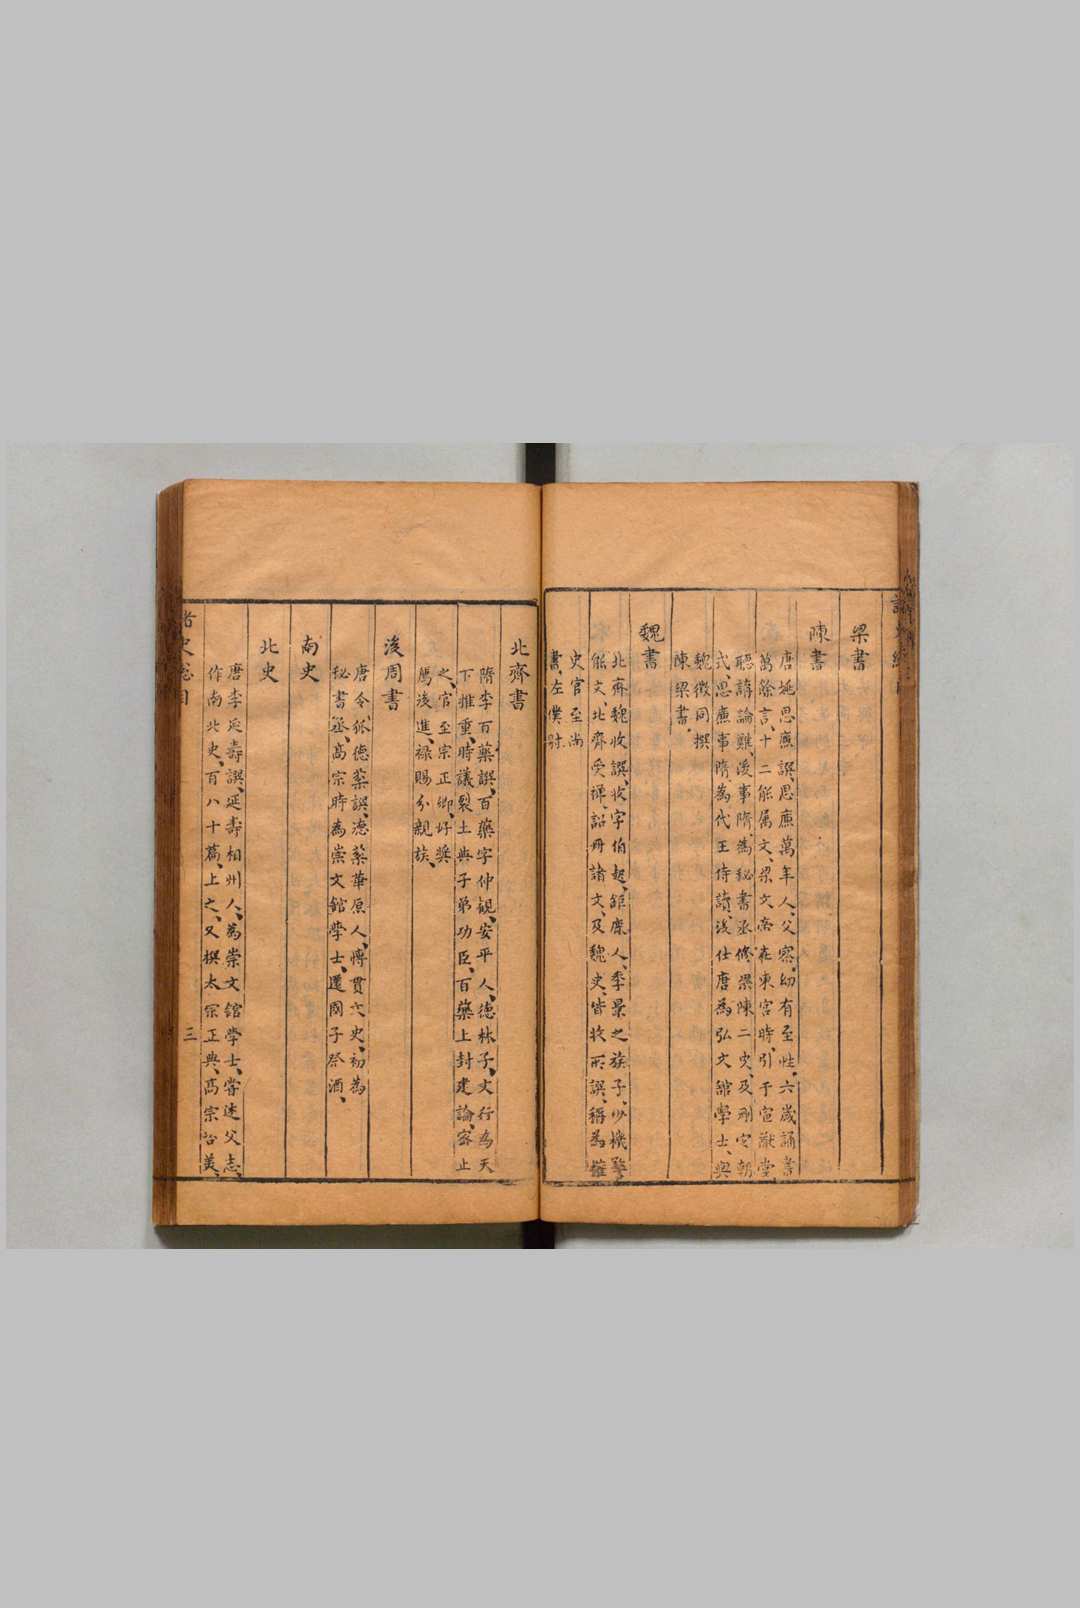 梁書
陳書
唐姚思廉譔思廉萬年人父察幼有至性六歲誦書
萬餘言十二能属文梁文帝在東宮時引于宣猷堂
聽講論難後事隋為秘書丞修梁陳二史及刪定朝
式思廉事隋為代王侍讀後仕唐為弘文舘學士與
魏徵同撰
陳梁書
魏書
北齊魏收譔收字伯起鉅鹿人季景之族子少機警
能文北齊受禪詔冊諸文及魏史皆收所譔稱為
史官至尚
書左僕射
北齊書
隋李百藥譔百藥字仲觀安平人德林子文行為天
下推重時議裂土與子弟功臣百藥上封建論寢止
之官至宗正卿好奬
薦後進禄賜分親族
後周書
唐令狐德棻譔德棻華原人愽貫六史初為
秘書丞高宗時為崇文舘學士遷國子祭酒
南史
北史
唐李延壽譔延壽相州人為崇文舘學士甞述父志
作南北史百八十篇上之又撰太宗正典高宗甞美
三